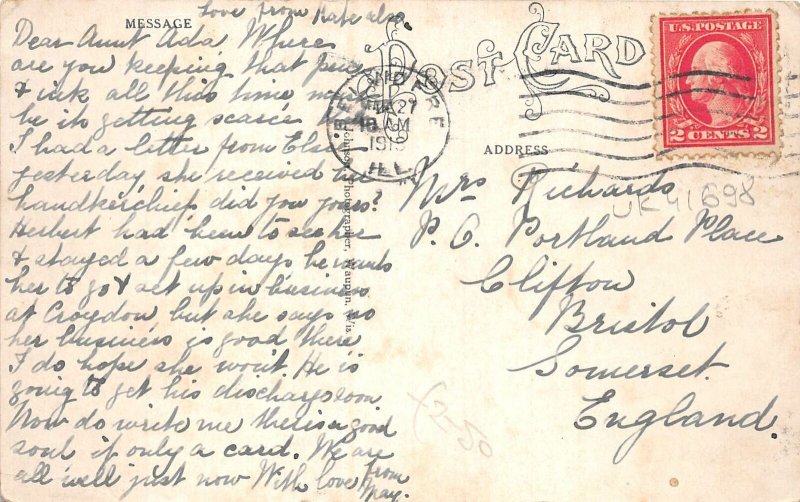 Love from Kate also
MESSAGE
Dear Aunt Ada, Where
are you keeping that pen
& ink all this time
be it's getting scarce
I had a letter from Elsie
yesterday she received her
handkerchief did you yours?
Herbert had been to see her
& stayed a few days he wants
her to go & set up in business
at Croydon but she says no
her business is good there
I do hope she won't. He is
going to get his discharge soon
Now do write me there is a good
soul if only a card. We are
all well just now With love from
May.
POST CARD
Photographer, Waupun, Wis.
27
AM
191
ILL.
U.S. POSTAGE
2 CENTS 2
ADDRESS
Mrs Richards
UK41698
P. O. Portland Place
Clifton
Bristol
Somerset.
England.
£2-50